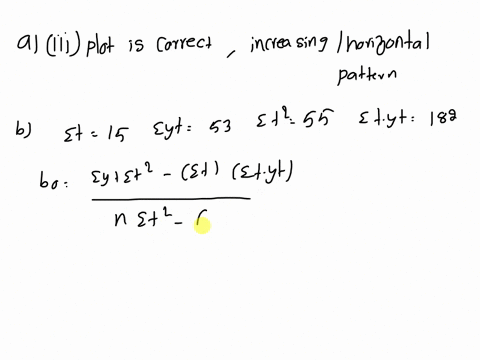 a) (iii) plot is correct, increasing/horizontal pattern
b) Σt = 15 Σyt = 53 Σt²= 55 Σt.yt = 182
b₀: Σyt Σt² - (Σt) (Σt.yt)
n Σt² - (